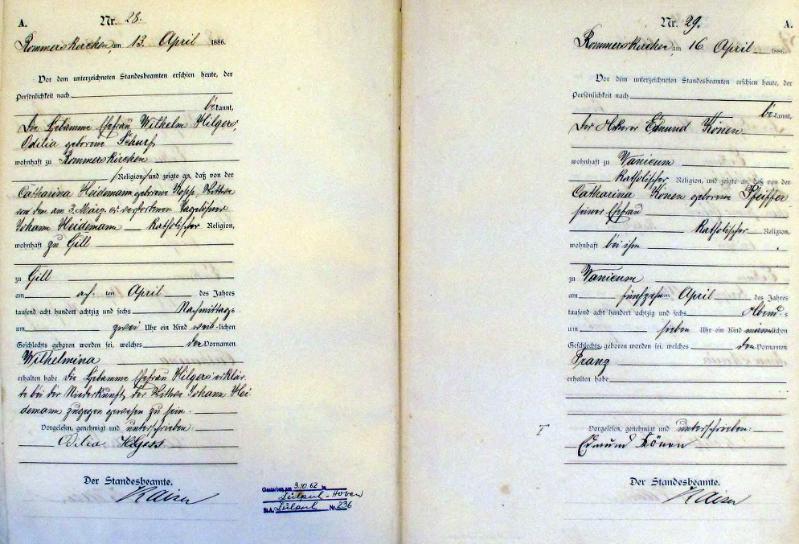 A.
Nr. 28.
Rommerskirchen, am 13. April 1886.
Vor dem unterzeichneten Standesbeamten erschien heute, der
Persönlichkeit nach
bekannt,
Die Hebamme Ehefrau Wilhelm Hilgers,
Odilia geborene Schurf
wohnhaft zu Rommerskirchen
Religion, und zeigte an, daß von der
Catharina Heidemann geborene Kopp, Wittwe
von dem am 3. März cr. verstorbenen Tagelöhner
Johann Heidemann Katholischer Religion,
wohnhaft zu Gill
zu Gill
am acht ten April des Jahres
tausend acht hundert achtzig und sechs Nachmittags
um zwei Uhr ein Kind weib-lichen
Geschlechts geboren worden sei, welches den Vornamen
Wilhelmina
erhalten habe die Hebamme Ehefrau Hilgers erklär-
te bei der Niederkunft der Wittwe Johann Hei
demann zugegen gewesen zu sein.
Vorgelesen, genehmigt und unterschrieben
Odilia Hilgers
Der Standesbeamte.
Kaiser
Gestorben am 3.10.62 in
Zülpich-Hoven
St.A. Zülpich Nr. 236
A.
Nr. 29.
Rommerskirchen, am 16 April 1886.
Vor dem unterzeichneten Standesbeamten erschien heute, der
Persönlichkeit nach
bekannt,
Der Ackerer Edmund Könen
wohnhaft zu Vanicum
Katholischer Religion, und zeigte an, daß von der
Catharina Könen geborene Pfeiffer
seiner Ehefrau
Katholischer Religion,
wohnhaft bei ihm
zu Vanicum
am fünfzehn ten April des Jahres
tausend acht hundert achtzig und sechs Abends
um sieben Uhr ein Kind männlichen
Geschlechts geboren worden sei, welches den Vornamen
Franz
erhalten habe
Vorgelesen, genehmigt und unterschrieben
Edmund Könen
Der Standesbeamte.
Kaiser